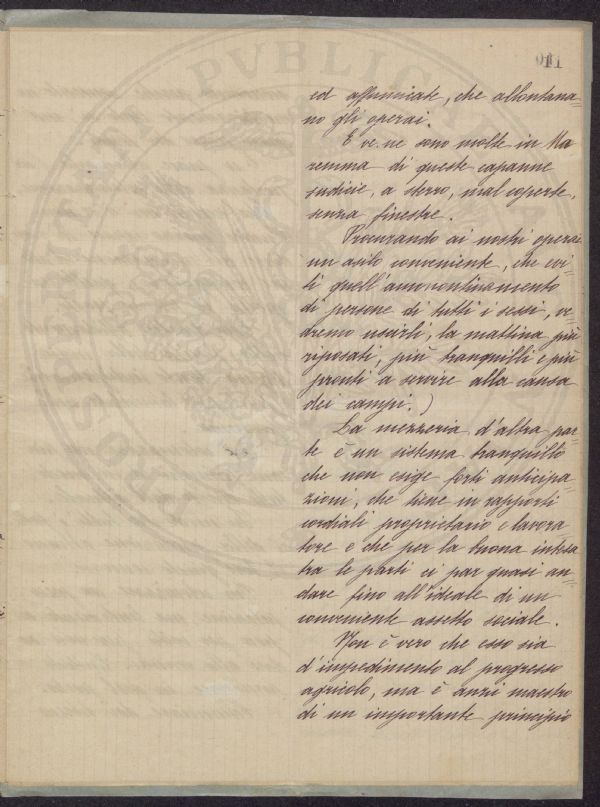 ed affumicate, che allontana=
no gli operai.
E ve ne sono molte in Ma
remma di queste capanne
sudicie, a sterro, mal coperte,
senza finestre.
Procurando ai nostri operai
un asilo conveniente, che evi=
ti quell'ammonticchiamento
di persone di tutti i sessi, ve=
dremo uscirli, la mattina più
riposati, più tranquilli e più
pronti a servire alla causa
dei campi.)
La mezzeria d'altra par=
te è un sistema tranquillo
che non esige forti anticipa=
zioni, che tiene in rapporti
cordiali proprietario e lavora
tore e che per la buona intesa
tra le parti ci par quasi an=
dare fino all'ideale di un
conveniente assetto sociale.
Non è vero che esso sia
d'impedimento al progresso
agricolo, ma è anzi maestro
di un importante principio
PVBLICA